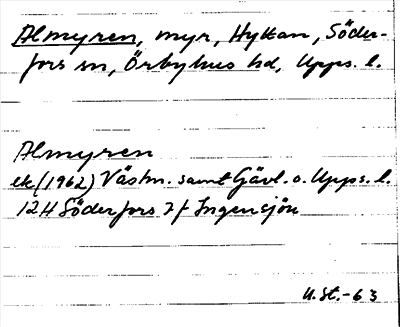 Almyren, myr, Hyttan, Söder-
fors sn, Örbyhus hd, Upps. l.
Almyren
ek (1962) Västm. samt Gävl. o. Upps. l.
12H Söderfors 7f Ingensjön
U. St. -63